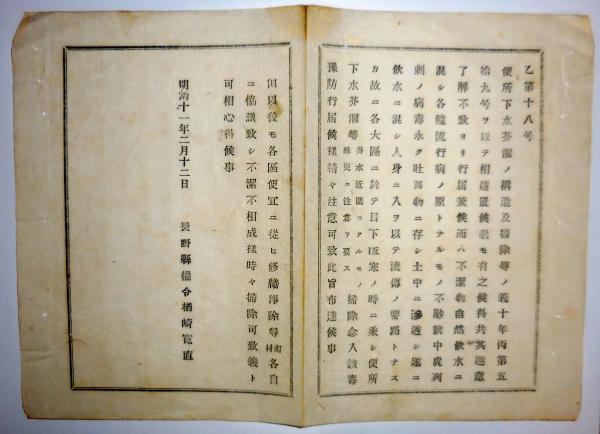 乙第十八号
便所下水芥溜ノ搆造及掃除等ノ義十年丙第五
拾九号ヲ以テ相達置候義モ有之候得共其趣意
了解不致ヨリ行届兼候而ハ不潔物自然飲水ニ
混シ各種流行病ノ原トナルモノ不尠就中虎列
刺ノ病毒永ク吐瀉物ニ存シ土中ニ滲透シ遂ニ
飲水ニ混シ人身ニ入ヲ以テ流傳ノ要路トナス
カ故ニ各大區ニ於テ目下沍寒ノ時ニ乘シ便所
下水芥溜等井水近圍ニアルモノ殊更ニ注意ヲ要ス掃除念入該毒
豫防行届候樣精々注意可致此旨布達候事
但以後モ各區便宜ニ從ヒ修繕淨除等町村各自
ニ協議致シ不潔不相成樣時々掃除可致義ト
可相心得候事
明治十一年二月十二日
長野縣權令楢崎寛直